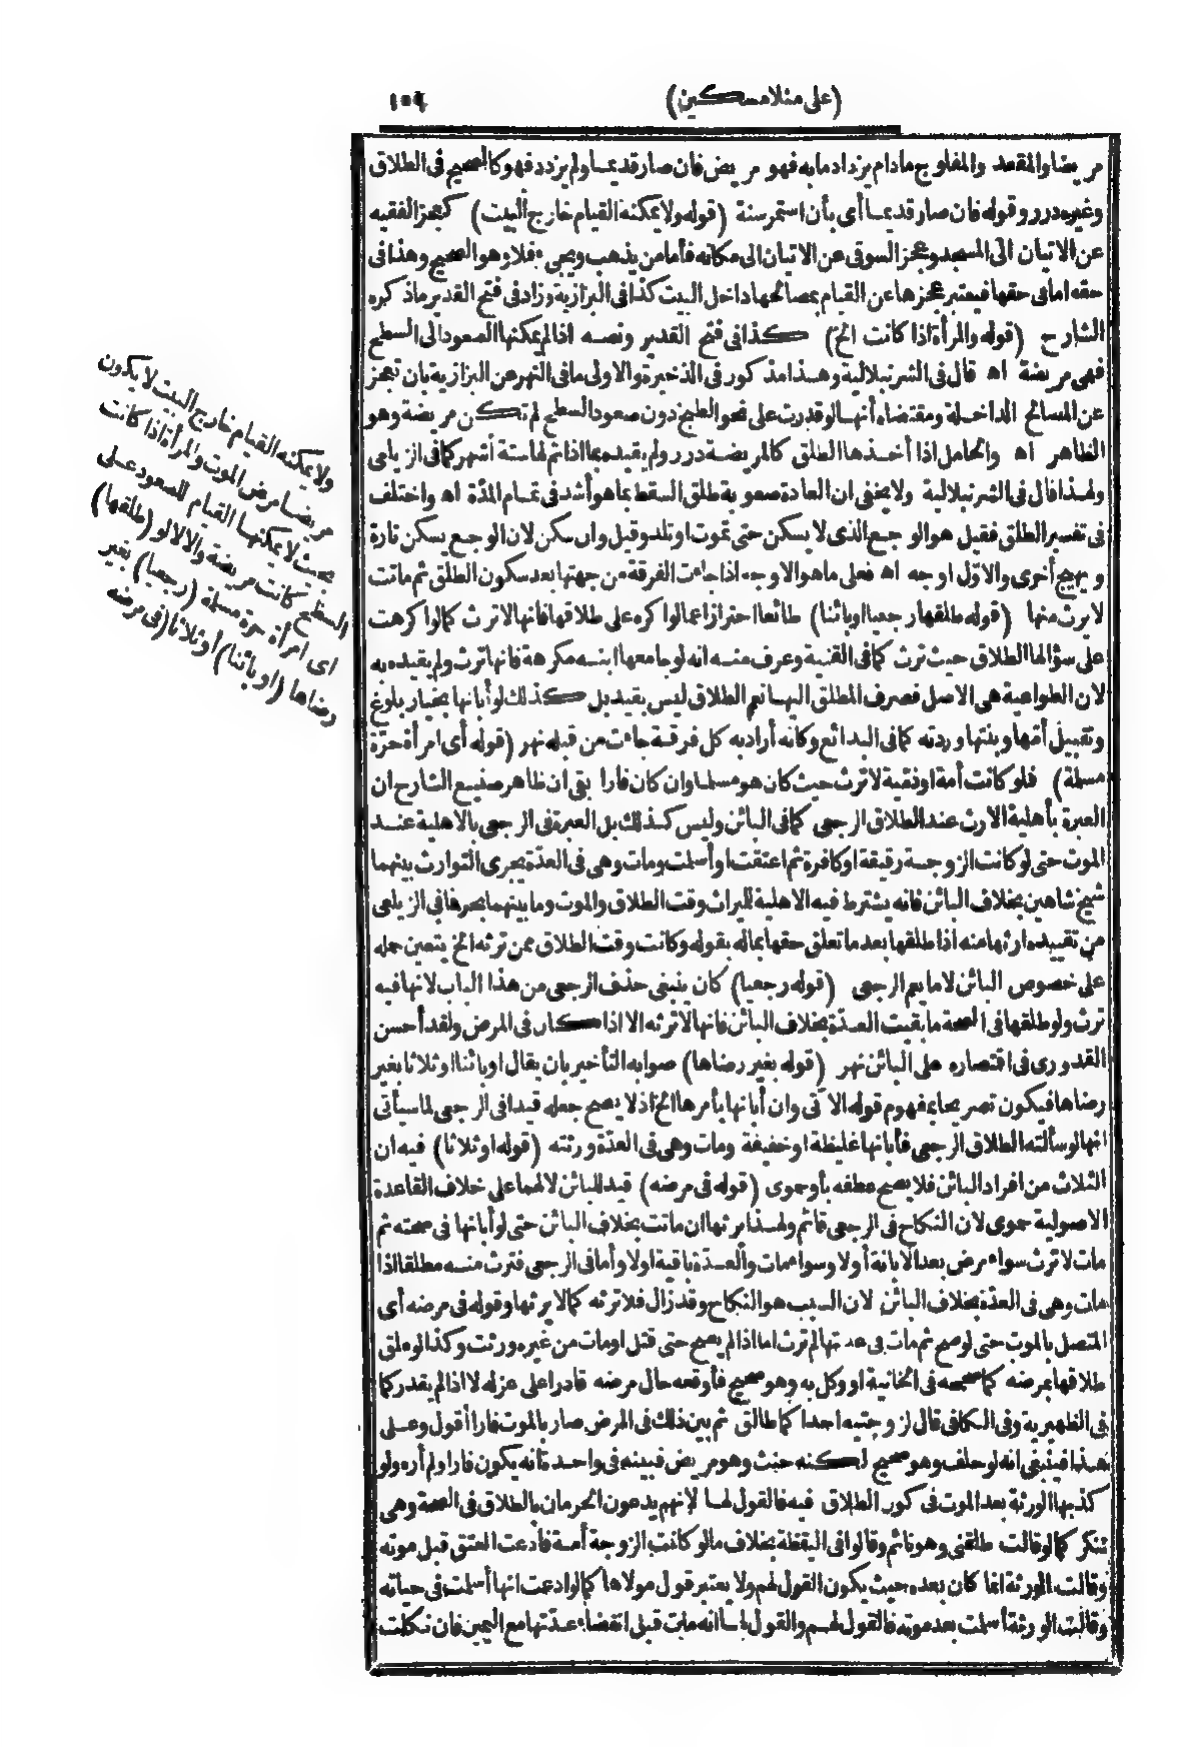 (على منلا مسكين)
١٥٩
مريضا والمقعد والمفلوج مادام يزداد ما به فهو مريض فان صار قديما ولم يزدد فهو كالصحيح فى الطلاق
وغيره درر وقوله فان صار قديما أى بأن استمر سنة (قوله ولا يمكنه القيام خارج البيت) كعجز الفقيه
عن الاتيان الى المسجد وعجز السوقى عن الاتيان الى مكانه فأما من يذهب ويجىء فلا وهو الصحيح وهذا فى
حقه اما فى حقها فيعتبر عجزها عن القيام بمصالحها داخل البيت كذا فى البزازية وزاد فى فتح القدير ما ذكره
الشارح (قوله والمرأة اذا كانت الخ) كذا فى فتح القدير ونصه اذا لم يمكنها الصعود الى السطح
فهى مريضة اه قال فى الشرنبلالية وهذا مذكور فى الذخيرة والاولى ما فى النهر عن البزازية بان تعجز
عن المصالح الداخلة ومقتضاه أنها لو قدرت على نحو الطبخ دون صعود السطح لم تكن مريضة وهو
الظاهر اه والحامل اذا أخذها الطلق كالمريضة درر ولم يقيده بما اذا تم لها ستة أشهر كما فى الزيلعى
ولهذا قال فى الشرنبلالية ولا يخفى ان العادة صعوبة طلق السقط بما هو أشد فى تمام المدّة اه واختلف
فى تفسير الطلق فقيل هو الوجع الذى لا يسكن حتى تموت او تلد وقيل وان سكن لان الوجع يسكن تارة
ويهيج أخرى والاوّل اوجه اه فعلى ما هو الاوجه اذا جاءت الفرقة من جهتها بعد سكون الطلق ثم ماتت
لا يرث منها (قوله طلقها رجعيا او بائنا) طائعا احترازا عما لو اكره على طلاقها فانها لا ترث كما لو اكرهت
على سؤالها الطلاق حيث ترث كما فى القنية وعرف منه انه لو جامعها ابنه مكرهة فانها ترث ولم يقيده به
لان الطواعية هى الاصل فصرف المطلق اليها نعم الطلاق ليس بقيد بل كذلك لو أبانها بخيار بلوغ
وتقبيل أمّها وبنتها وردته كما فى البدائع وكانه أراد به كل فرقة جاءت من قبله نهر (قوله أى امرأة حرّة
مسلمة) فلو كانت أمة او ذمّية لا ترث حيث كان هو مسلما وان كان فارا بقى ان ظاهر صنيع الشارح ان
العبرة بأهلية الارث عند الطلاق الرجعى كما فى البائن وليس كذلك بل العبرة فى الرجعى بالاهلية عند
الموت حتى لو كانت الزوجة رقيقة او كافرة ثم اعتقت او أسلمت ومات وهى فى العدّة يجرى التوارث بينهما
شيخ شاهين بخلاف البائن فانه يشترط فيه الاهلية للميراث وقت الطلاق والموت وما بينهما بحر فما فى الزيلعى
من تقييده ارثها منه اذا طلقها بعد ما تعلق حقها بماله بقوله وكانت وقت الطلاق ممن ترثه الخ يتعين حمله
على خصوص البائن لا ما يعم الرجعى (قوله رجعيا) كان ينبغى حذف الرجعى من هذا الباب لانها فيه
ترث ولو طلقها فى الصحة ما بقيت العدّة بخلاف البائن فانها لا ترثه الا اذا كان فى المرض ولقد أحسن
القدورى فى اقتصاره على البائن نهر (قوله بغير رضاها) صوابه التأخير بان يقال او بائنا او ثلاثا بغير
رضاها فيكون تصريحا بمفهوم قوله الآتى وان أبانها بأمرها الخ اذ لا يصح جعله قيدا فى الرجعى لما سيأتى
انها لو سألته الطلاق الرجعى فأبانها غليظة او خفيفة ومات وهى فى العدّة ورثته (قوله او ثلاثا) فيه ان
الثلاث من افراد البائن فلا يصح عطفه بأو حموى (قوله فى مرضه) قيد للبائن لا لهما على خلاف القاعدة
الاصولية حموى لان النكاح فى الرجعى قائم ولهذا يرثها ان ماتت بخلاف البائن حتى لو أبانها فى صحته ثم
مات لا ترث سواء مرض بعد الابانة أو لا وسواء مات والعدّة باقية او لا وأما فى الرجعى فترث منه مطلقا اذا
مات وهى فى العدّة بخلاف البائن لان السبب هو النكاح وقد زال فلا ترثه كما لا يرثها وقوله فى مرضه أى
المتصل بالموت حتى لو صح ثم مات فى عدتها لم ترث اما اذا لم يصح حتى قتل او مات من غيره ورثت وكذا لو علق
طلاقها بمرضه كما صححه فى الخانية او وكل به وهو صحيح فأوقعه حال مرضه قادرا على عزله لا اذا لم يقدر كما
فى الظهيرية وفى الكافى قال لزوجتيه احداكما طالق ثم بين ذلك فى المرض صار بالموت فارا أقول وعلى
هذا فينبغى انه لو حلف وهو صحيح لكنه حنث وهو مريض فبينه فى واحدة فانه يكون فارا ولم أره ولو
كذبها الورثة بعد الموت فى كون الطلاق فيه فالقول لها لانهم يدعون الحرمان بالطلاق فى الصحة وهى
تنكر كما لو قالت طلقنى وهو نائم وقالوا فى اليقظة بخلاف ما لو كانت الزوجة أمة فادعت العتق قبل موته
وقالت الورثة انما كان بعده حيث يكون القول لهم ولا يعتبر قول مولاها كما لو ادعت انها أسلمت فى حياته
وقالت الورثة أسلمت بعد موته فالقول لهم والقول لها انه مات قبل انقضاء عدّتها مع اليمين فان نكلت
ولا يمكنه القيام خارج البيت لا يكون
مريضا مرض الموت والمرأة اذا كانت
بحيث لا يمكنها القيام للصعود على
السطح كانت مريضة والا لا لو (طلقها)
اى امرأة حرة مسلمة (رجعيا) بغير
رضاها (او بائنا) أو ثلاثا (فى مرضه